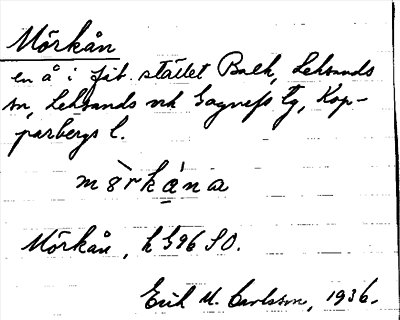 Mörkån
en å i fäb. stället Back, Leksands
sn, Leksands och Gagnefs tg, Kop-
parbergs l.
mö̀rká̱na
Mörkån, h G96 SO.
Erik M. Carlsson, 1936.